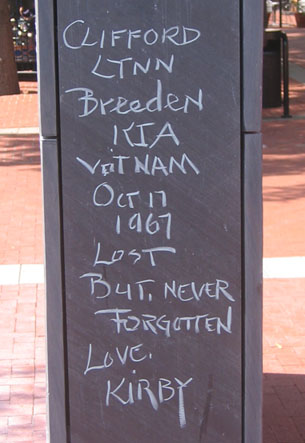 CLIFFORD
LYNN
BreedeN
KIA
VIETNAM
Oct 17
1967
LOST
BUT, NEVER
FORGOTTEN
LOVE,
KIRBY